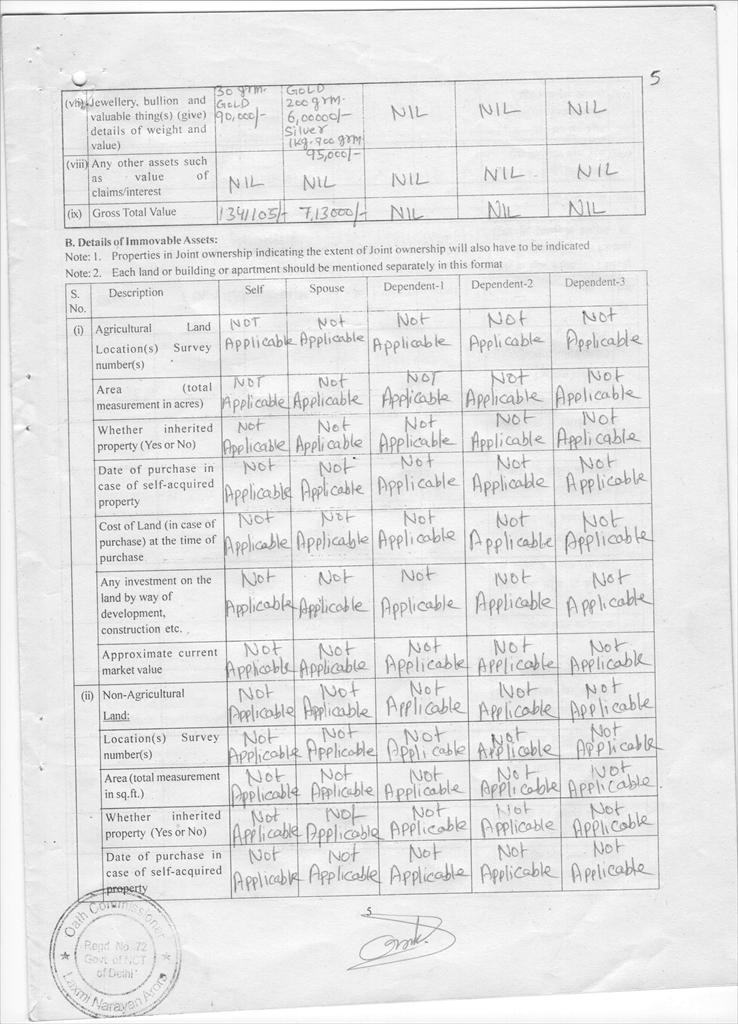 5
(vii) Jewellery, bullion and valuable thing(s) (give) details of weight and value) | 30 grm. GOLD 90,000/- | GOLD 200 grm. 6,00000/- Silver 1kg. 700 grm 95,000/- | NIL | NIL | NIL
(viii) Any other assets such as value of claims/interest | NIL | NIL | NIL | NIL | NIL
(ix) Gross Total Value | 1341105/- | 7,13000/- | NIL | NIL | NIL
B. Details of Immovable Assets:
Note: 1. Properties in Joint ownership indicating the extent of Joint ownership will also have to be indicated
Note: 2. Each land or building or apartment should be mentioned separately in this format
S. No. | Description | Self | Spouse | Dependent-1 | Dependent-2 | Dependent-3
(i) Agricultural Land Location(s) Survey number(s) | NOT Applicable | Not Applicable | Not Applicable | Not Applicable | Not Applicable
Area (total measurement in acres) | NOT Applicable | Not Applicable | NOT Applicable | Not Applicable | Not Applicable
Whether inherited property (Yes or No) | Not Applicable | Not Applicable | Not Applicable | Not Applicable | Not Applicable
Date of purchase in case of self-acquired property | Not Applicable | Not Applicable | Not Applicable | Not Applicable | Not Applicable
Cost of Land (in case of purchase) at the time of purchase | Not Applicable | Not Applicable | Not Applicable | Not Applicable | Not Applicable
Any investment on the land by way of development, construction etc. | Not Applicable | Not Applicable | Not Applicable | Not Applicable | Not Applicable
Approximate current market value | Not Applicable | Not Applicable | Not Applicable | Not Applicable | Not Applicable
(ii) Non-Agricultural Land: | Not Applicable | Not Applicable | Not Applicable | Not Applicable | Not Applicable
Location(s) Survey number(s) | Not Applicable | Not Applicable | Not Applicable | Not Applicable | Not Applicable
Area (total measurement in sq.ft.) | Not Applicable | Not Applicable | Not Applicable | Not Applicable | Not Applicable
Whether inherited property (Yes or No) | Not Applicable | Not Applicable | Not Applicable | Not Applicable | Not Applicable
Date of purchase in case of self-acquired property | Not Applicable | Not Applicable | Not Applicable | Not Applicable | Not Applicable
5
Oath Commissioner
Regd. No. 72
Govt of NCT
of Delhi
Laxmi Narayan Arora